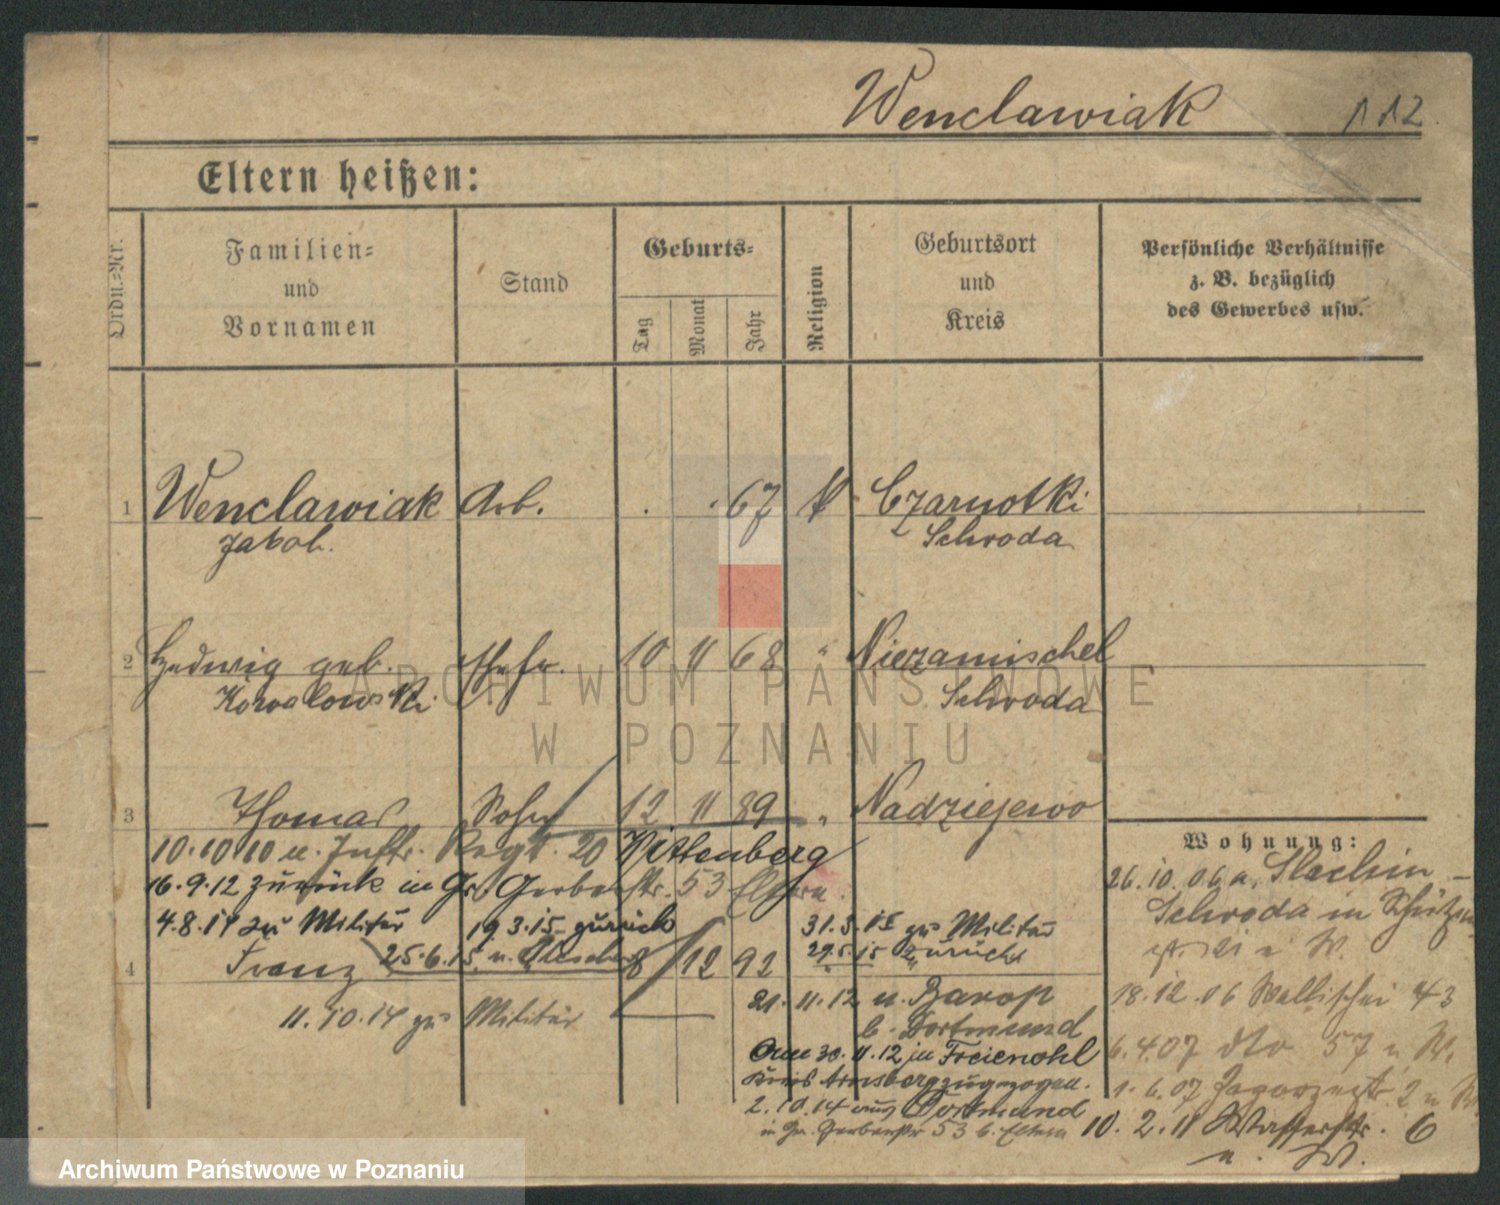 Wenclawiak 112
Eltern heißen:
Ordn.-Nr.
Familien-
und
Vornamen
Stand
Geburts-
Tag
Monat
Jahr
Religion
Geburtsort
und
Kreis
Persönliche Verhältnisse
z. B. bezüglich
des Gewerbes usw.
1 Wenclawiak Arb. . . 67 k Czarnotki
Jakob. Schroda
2 Hedwig geb. Ehefr. 10 11 68 " Niezamischel
Kowalowski Schroda
3 Thomas Sohn 12 11 89 " Nadziejewo
10.10 10 u. Inftr. Regt. 20 Wittenberg
16.9.12 zurück in Gr. Gerberstr. 53 Eltern
4.8.14 zu Militär 19 3.15 zurück 31.3.15 zu Militär
25.6.15 u. 29.5.15 zurück
4 Franz 8 12 92
21.11.12 u. Barop
11.10.14 zu Militär
b. Dortmund
30.11.12 in Freienohl
Kreis Arnsberg zugezogen.
2.10.14 aus Dortmund
in Gr. Gerberstr 53 b. Eltern
Wohnung:
26.10.06 a. Slachin -
Schroda in
u W.
18.12.06 Wallischei 43
6.4.07 dto 57 u W.
1.6.07 2 u W
10.2.11 Wasserstr. 6
u. W.
ARCHIWUM PAŃSTWOWE
W POZNANIU
Archiwum Państwowe w Poznaniu